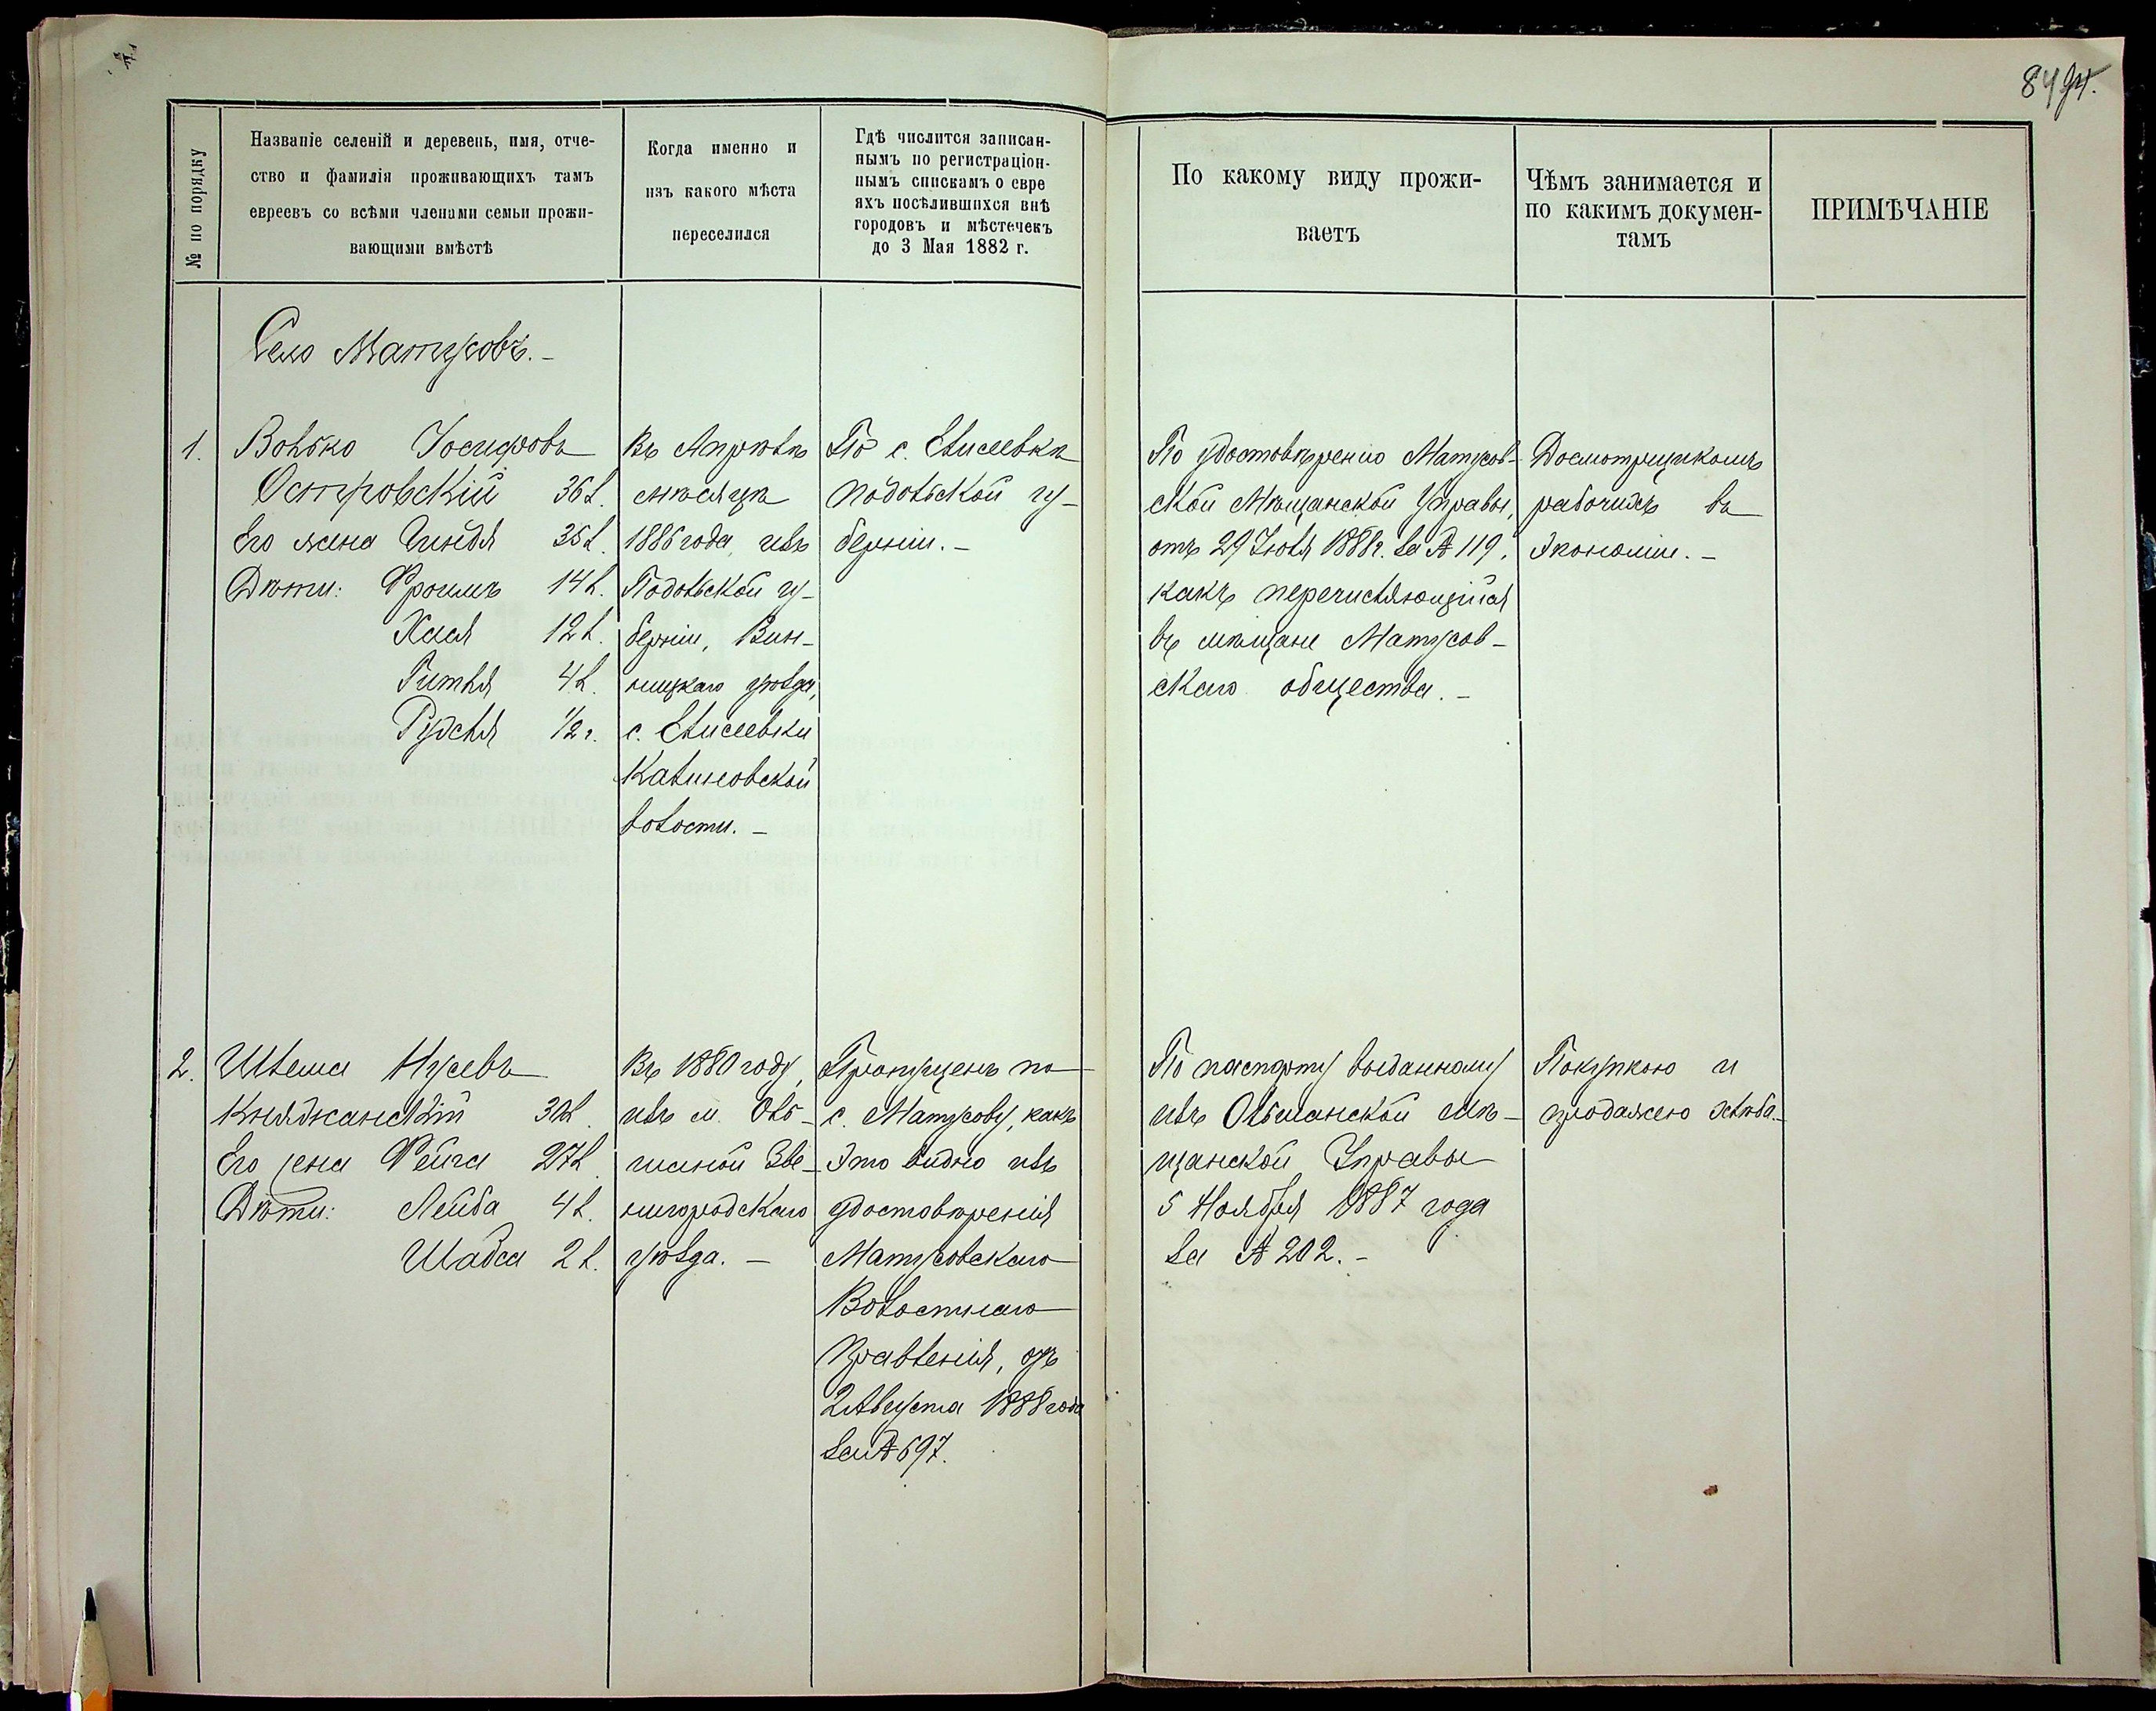 84 94.
№ по порядку
Названіе селеній и деревень, имя, отче-
ство и фамилія проживающихъ тамъ
евреевъ со всѣми членами семьи прожи-
вающими вмѣстѣ
Когда именно и
изъ какого мѣста
переселился
Гдѣ числится записан-
нымъ по регистраціон-
нымъ спискамъ о евре
яхъ посѣлившихся внѣ
городовъ и мѣстечекъ
до 3 Мая 1882 г.
По какому виду прожи-
ваетъ
Чѣмъ занимается и
по какимъ докумен-
тамъ
ПРИМѢЧАНІЕ
Село Матусовъ.-
1.
Волько Іосифовъ
Островскій 36 л.
Его жена Гиндля 35 л.
Дѣти: Фроимъ 14 л.
Хая 12 л.
Гитля 4 л.
Рудля 1/2 г.
Въ Апрѣлѣ
мѣсяцѣ
1886 года изъ
Подольской гу-
берніи, Вин-
ницкаго уѣзда,
с. Елисеевки
Калиновской
волости.-
По с. Елисеевкѣ
Подольской гу-
берніи.-
По удостовѣренію Матусов-
ской Мѣщанской Управы,
отъ 29 Іюля 1888 г. за № 119,
какъ перечисляющійся
въ мѣщане Матусов-
скаго общества.-
Досмотрщикомъ
рабочихъ въ
экономіи.-
2.
Шлема Нусевъ
Княжанскій 30 л.
Его жена Фейга 27 л.
Дѣти: Лейба 4 л.
Шабса 2 л.
Въ 1880 году,
изъ м. Оль-
шаной Зве-
нигородскаго
уѣзда.-
Пропущенъ по
с. Матусову, какъ
это видно изъ
удостовѣренія
Матусовскаго
Волостнаго
Правленія, отъ
2 Августа 1888 года
за № 697.
По паспорту выданному
изъ Ольшанской мѣ-
щанской Управы
5 Ноября 1887 года
за № 202.-
Покупкою и
продажею хлѣба.-